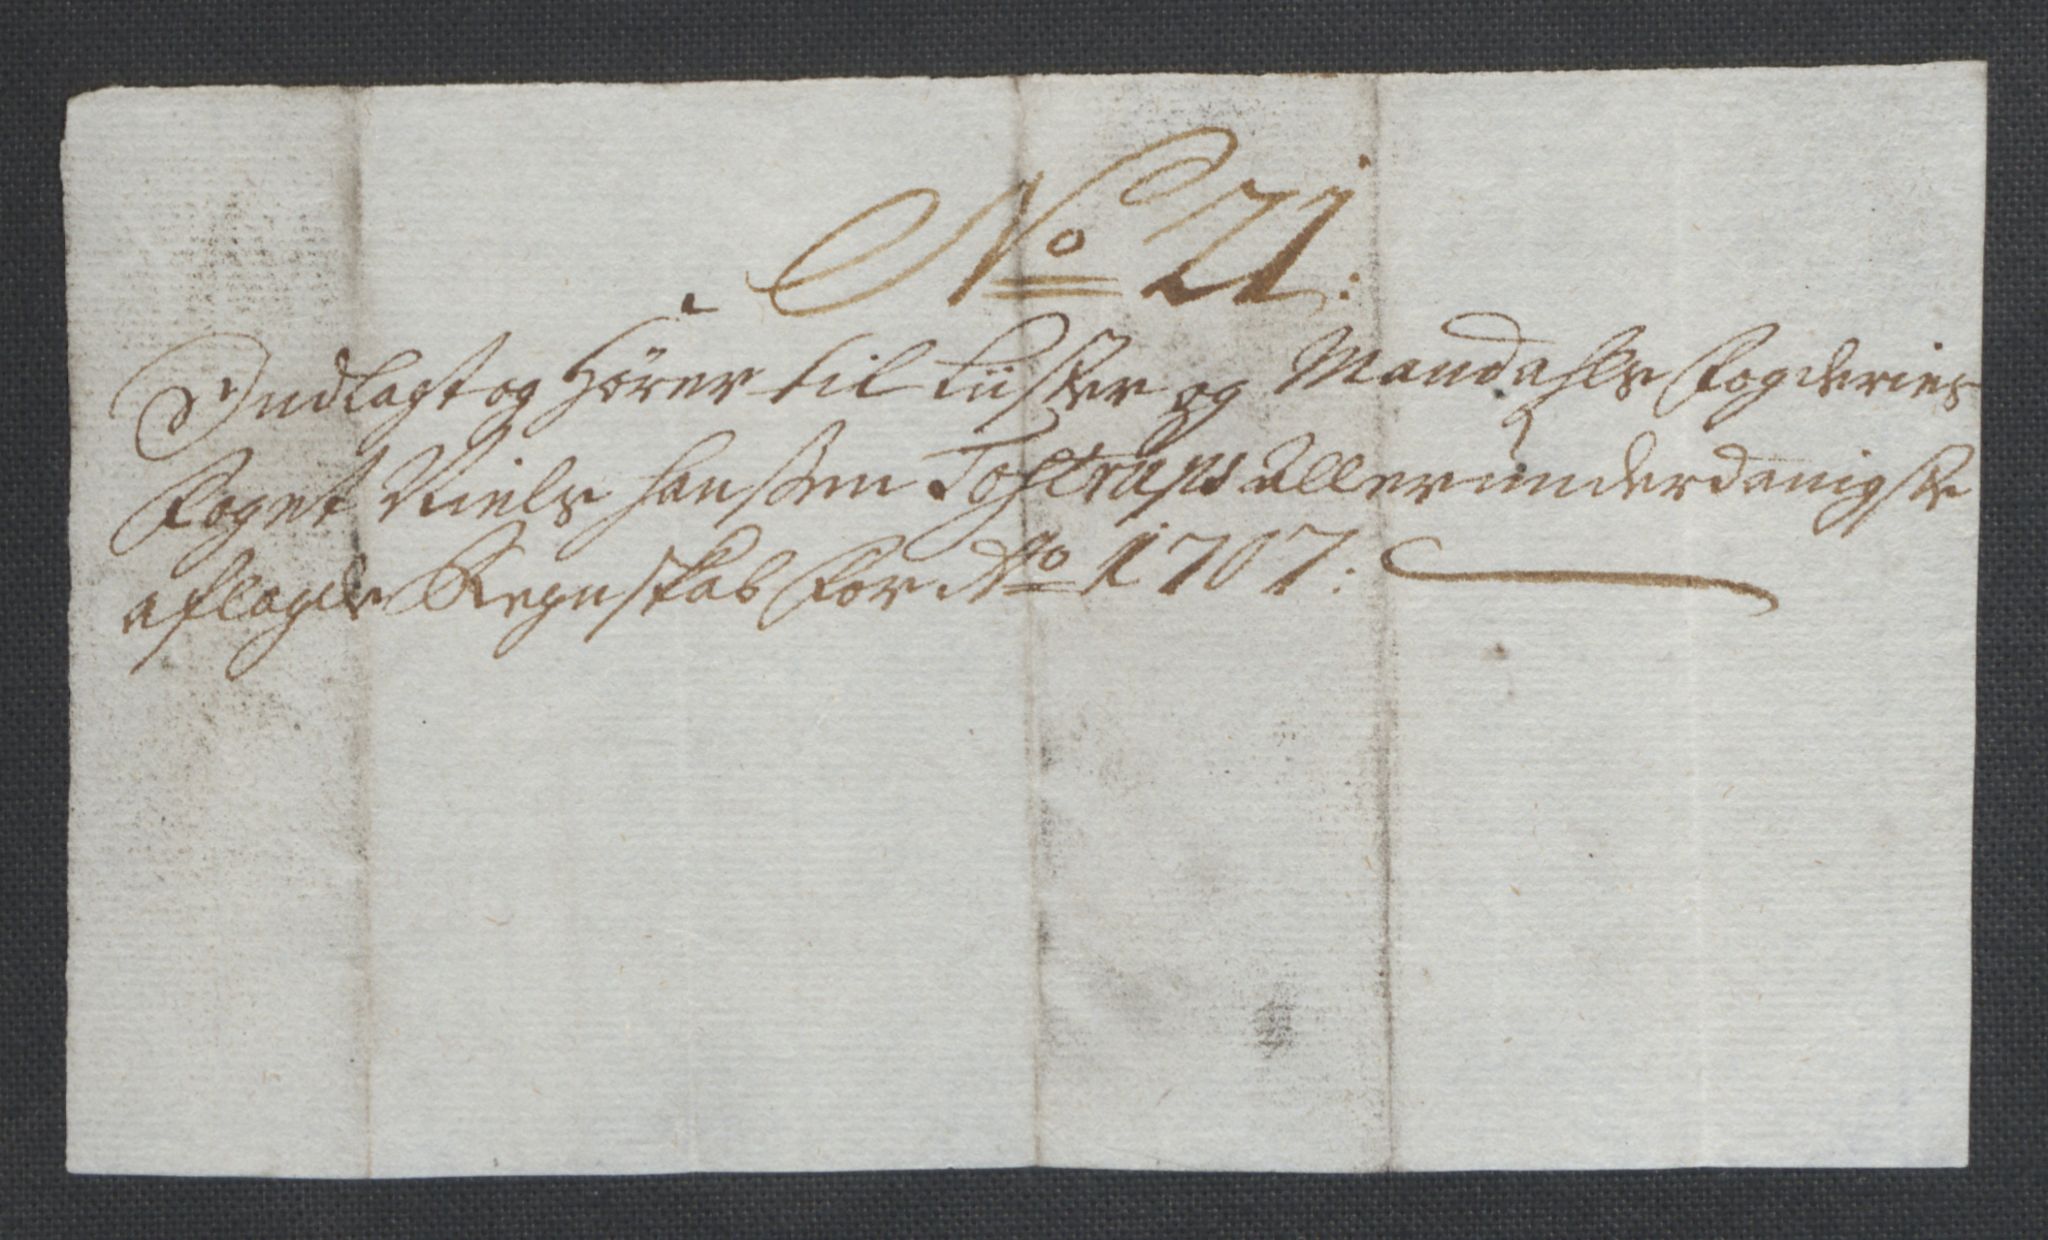 No 21:
Indlagt og hörer til Lister og Mandahls Fogderies
Foget Niels Hanssen Tostrups allerunderdanigste
aflagde Regnskab for Ao 1707: